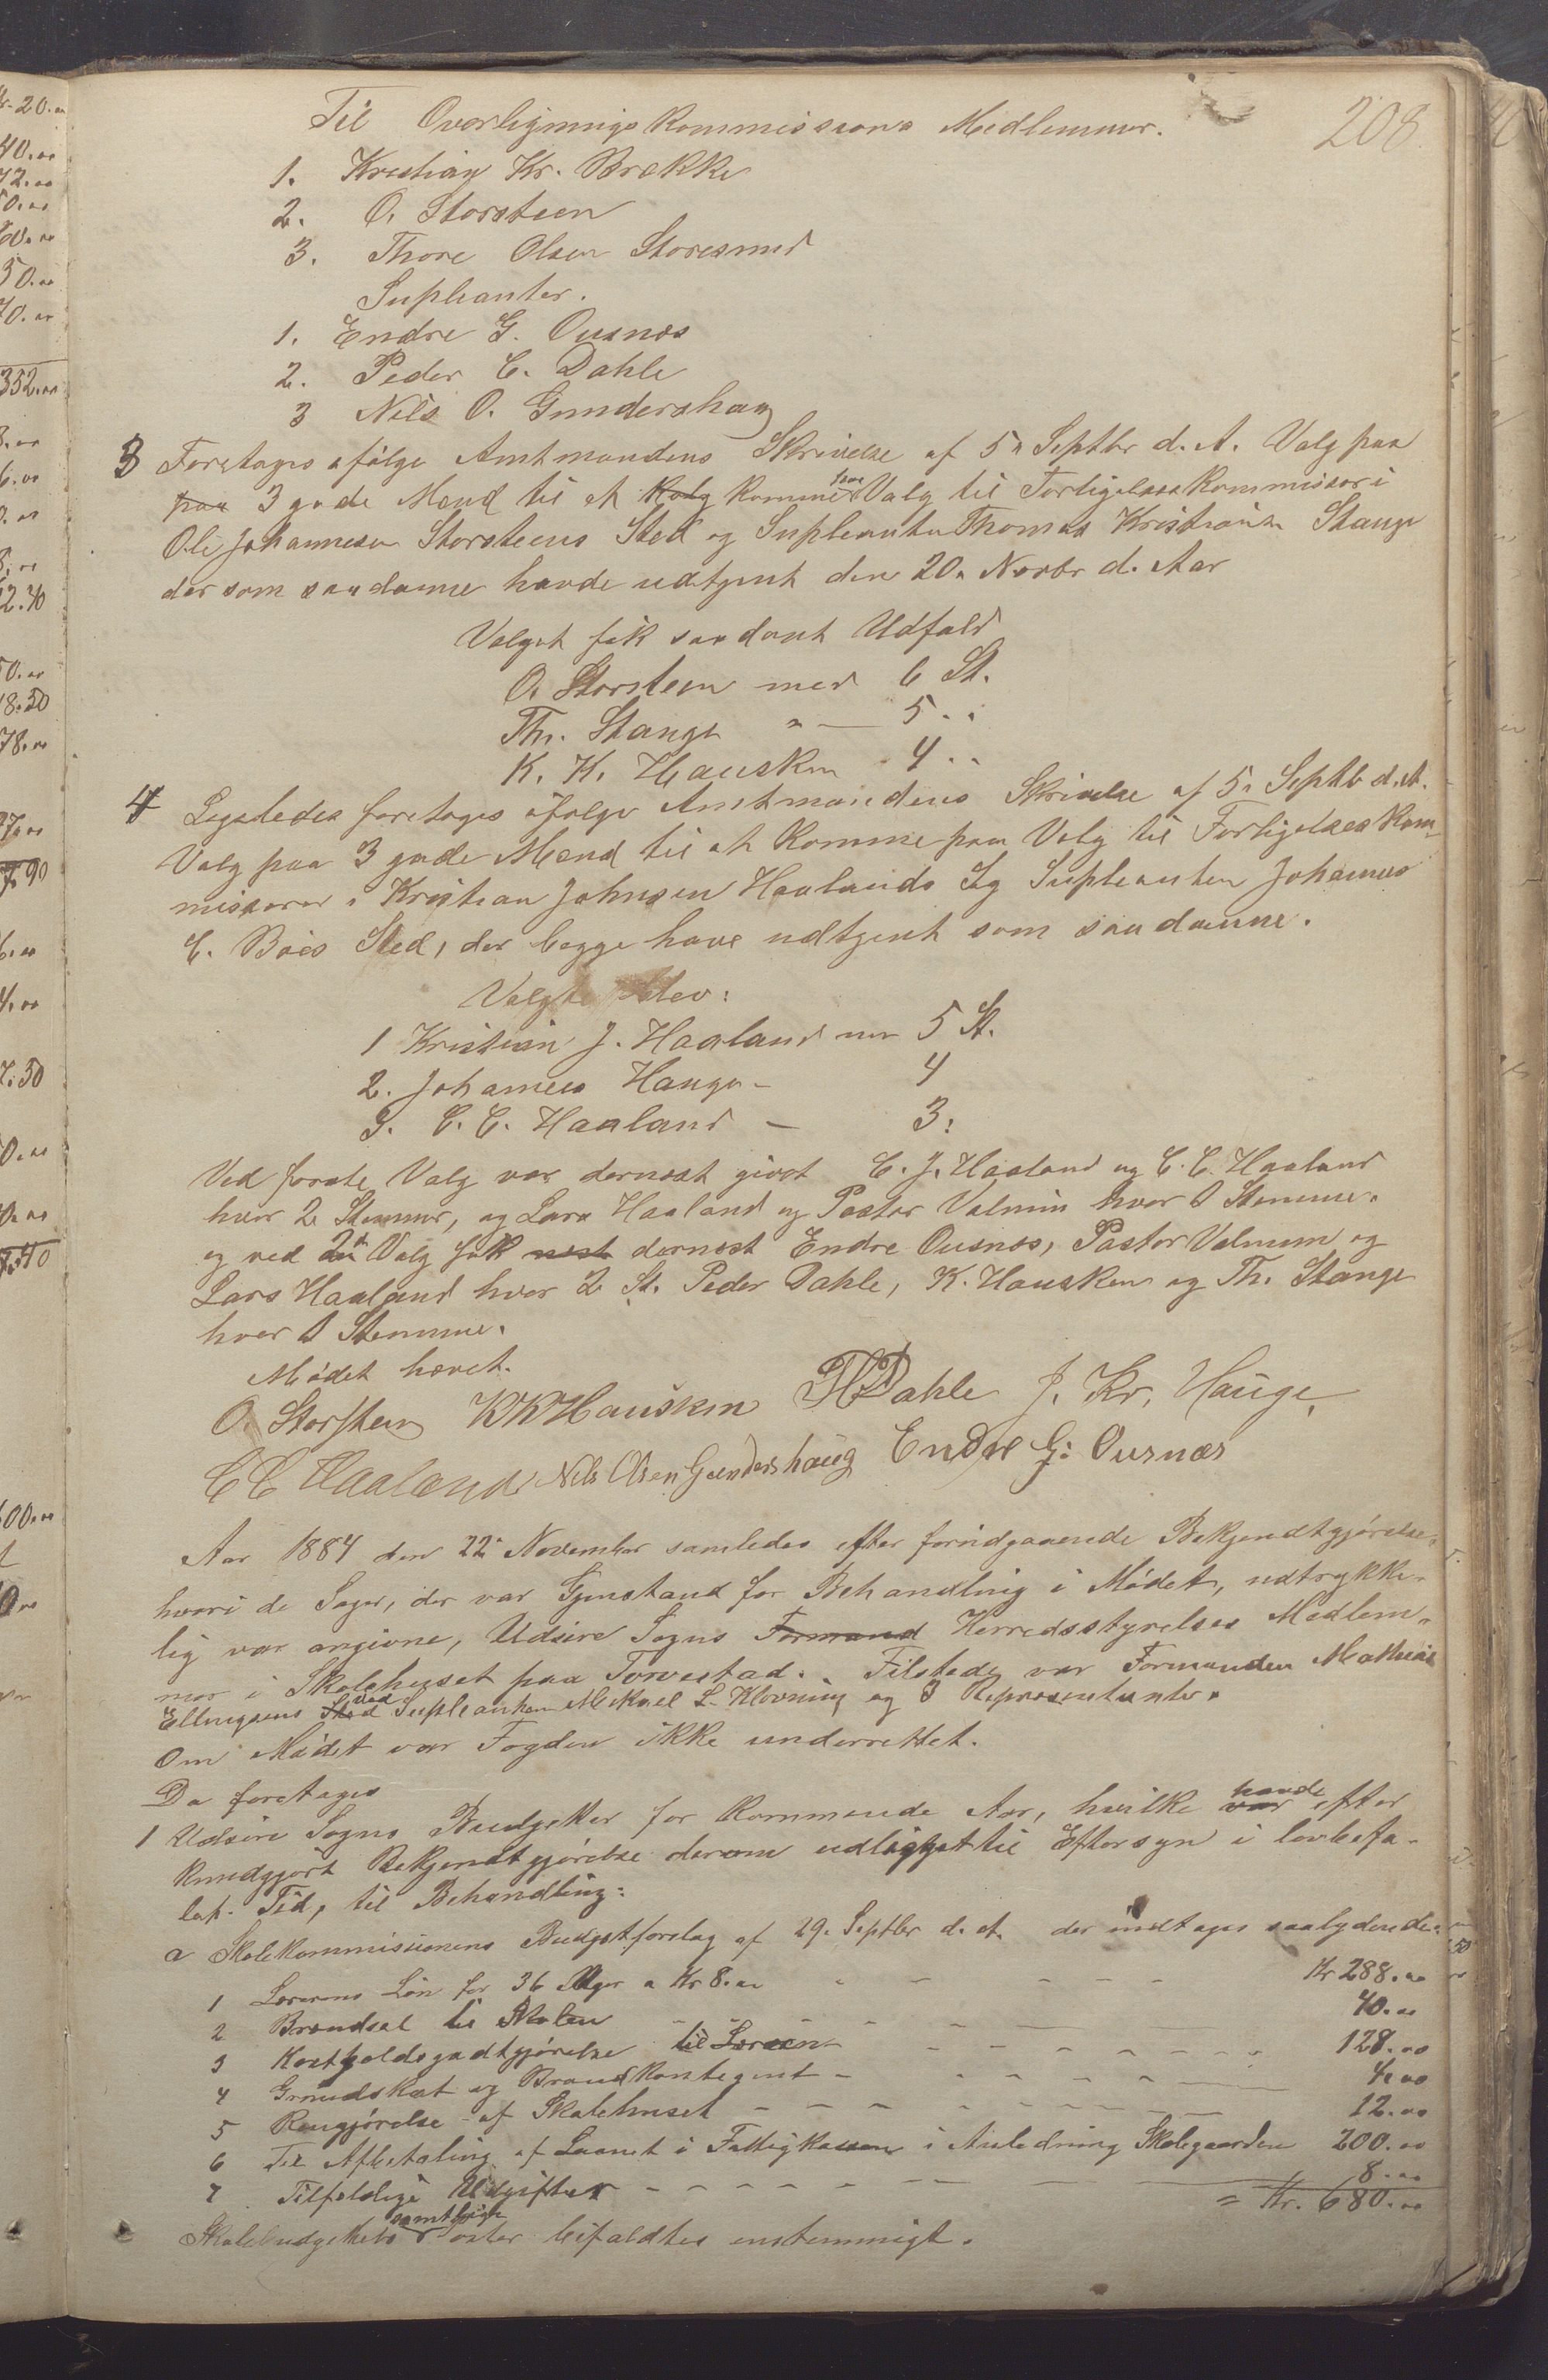 208
Til Overligningskommissions Medlemmer.
1. Kristian Kr. Brække
2. O. Storsteen
3. Thore Olsen Storesund
Supleanter.
1. Endre G. Ousnæs
2. Peder C. Dahle
3 Nils O. Gundershaug
3 Foretoges ifølge Amtmandens Skrivelse af 5te Septbr d. A. Valg paa
paa 3 gode Mænd til at Valg komme paa Valg til Forligelseskommissær i
Ole Johannesen Storsteens Sted og Supleanten Thomas Kristiansen Stange
der som saadanne havde udtjent den 20de Novbr d. Aar
Valget fik saadant Udfald
O. Storsteen med 6 St.
Th. Stange " — 5 "
K. K. Hausken 4 "
4 Ligeledes foretoges ifølge Amtmandens Skrivelse af 5te Septb d. A.
Valg paa 3 gode Mænd til at komme paa Valg til Forligelseskom-
missærer i Kristian Johnsen Haalands og Supleanten Johannes
C. Bøes Sted, der begge have udtjent som saadanne.
Valgte blev:
1 Kristian J. Haaland med 5 St.
2. Johannes Hauge - 4
3. C. C. Haaland — 3:
Ved første Valg var dernæst givet C. J. Haaland og C. C. Haaland
hver 2 Stemmer, og Lars Haaland og Pastor Valmin hver 1 Stemme.
og ved 2det Valg fik næst dernæst Endre Ousnæs, Pastor Valmin og
Lars Haaland hver 2 St. Peder Dahle, K. Hausken og Th. Stange
hver 1 Stemme.
Mødet hævet.
O. Storsteen KKHausken PCDahle J. Kr. Hauge,
C C Haaland Nils Olsen Gundershaug Endre G: Ousnæs
Aar 1884 den 22de November samledes efter foridgaaende Bekjendtgjørelse,
hvori de Sager, der var Gjenstand for Behandling i Mødet, udtrykke-
lig var angivne, Udsire Sogns Formand Herredsstyrelses Medlem-
mer i Skolehuset paa Torvestad. Tilstede var Formanden Mathias
Ellingsens Sted ved Supleanten Mikael L. Klovning og 3 Repræsentanter.
Om Mødet var Fogden ikke underrettet.
Da foretoges
1 Udsire Sogns Budgetter for kommende Aar, hvilke var havde efter
kundgjort Bekjendtgjørelse derom udligget til Eftersyn i lovbefa-
let Tid, til Behandling:
a Skolekommissionens Budgetforslag af 29. Septbr d. A. der indtages saalydende:
1 Lærerens Løn for 36 Uger a Kr 8.00 - - - - - Kr 288.00
2 Brændsel til Skolen - - - - - 40.00
3 Kostholdsgodtgjørelse til Læreren - - - - - 128.00
4 Grundskat og Brandkontegent - - - - - 4.00
5 Rengjørelse af Skolehuset - - - - - 12.00
6 Til Afbetaling af Laanet i Fattigkassen i Anledning Skolegaarden 200.00
7 Tilfældige Udgifter - - - - - 8.00
= Kr. 680.00
Skolebudgettets samtlige poster bifaldtes enstemmigt.